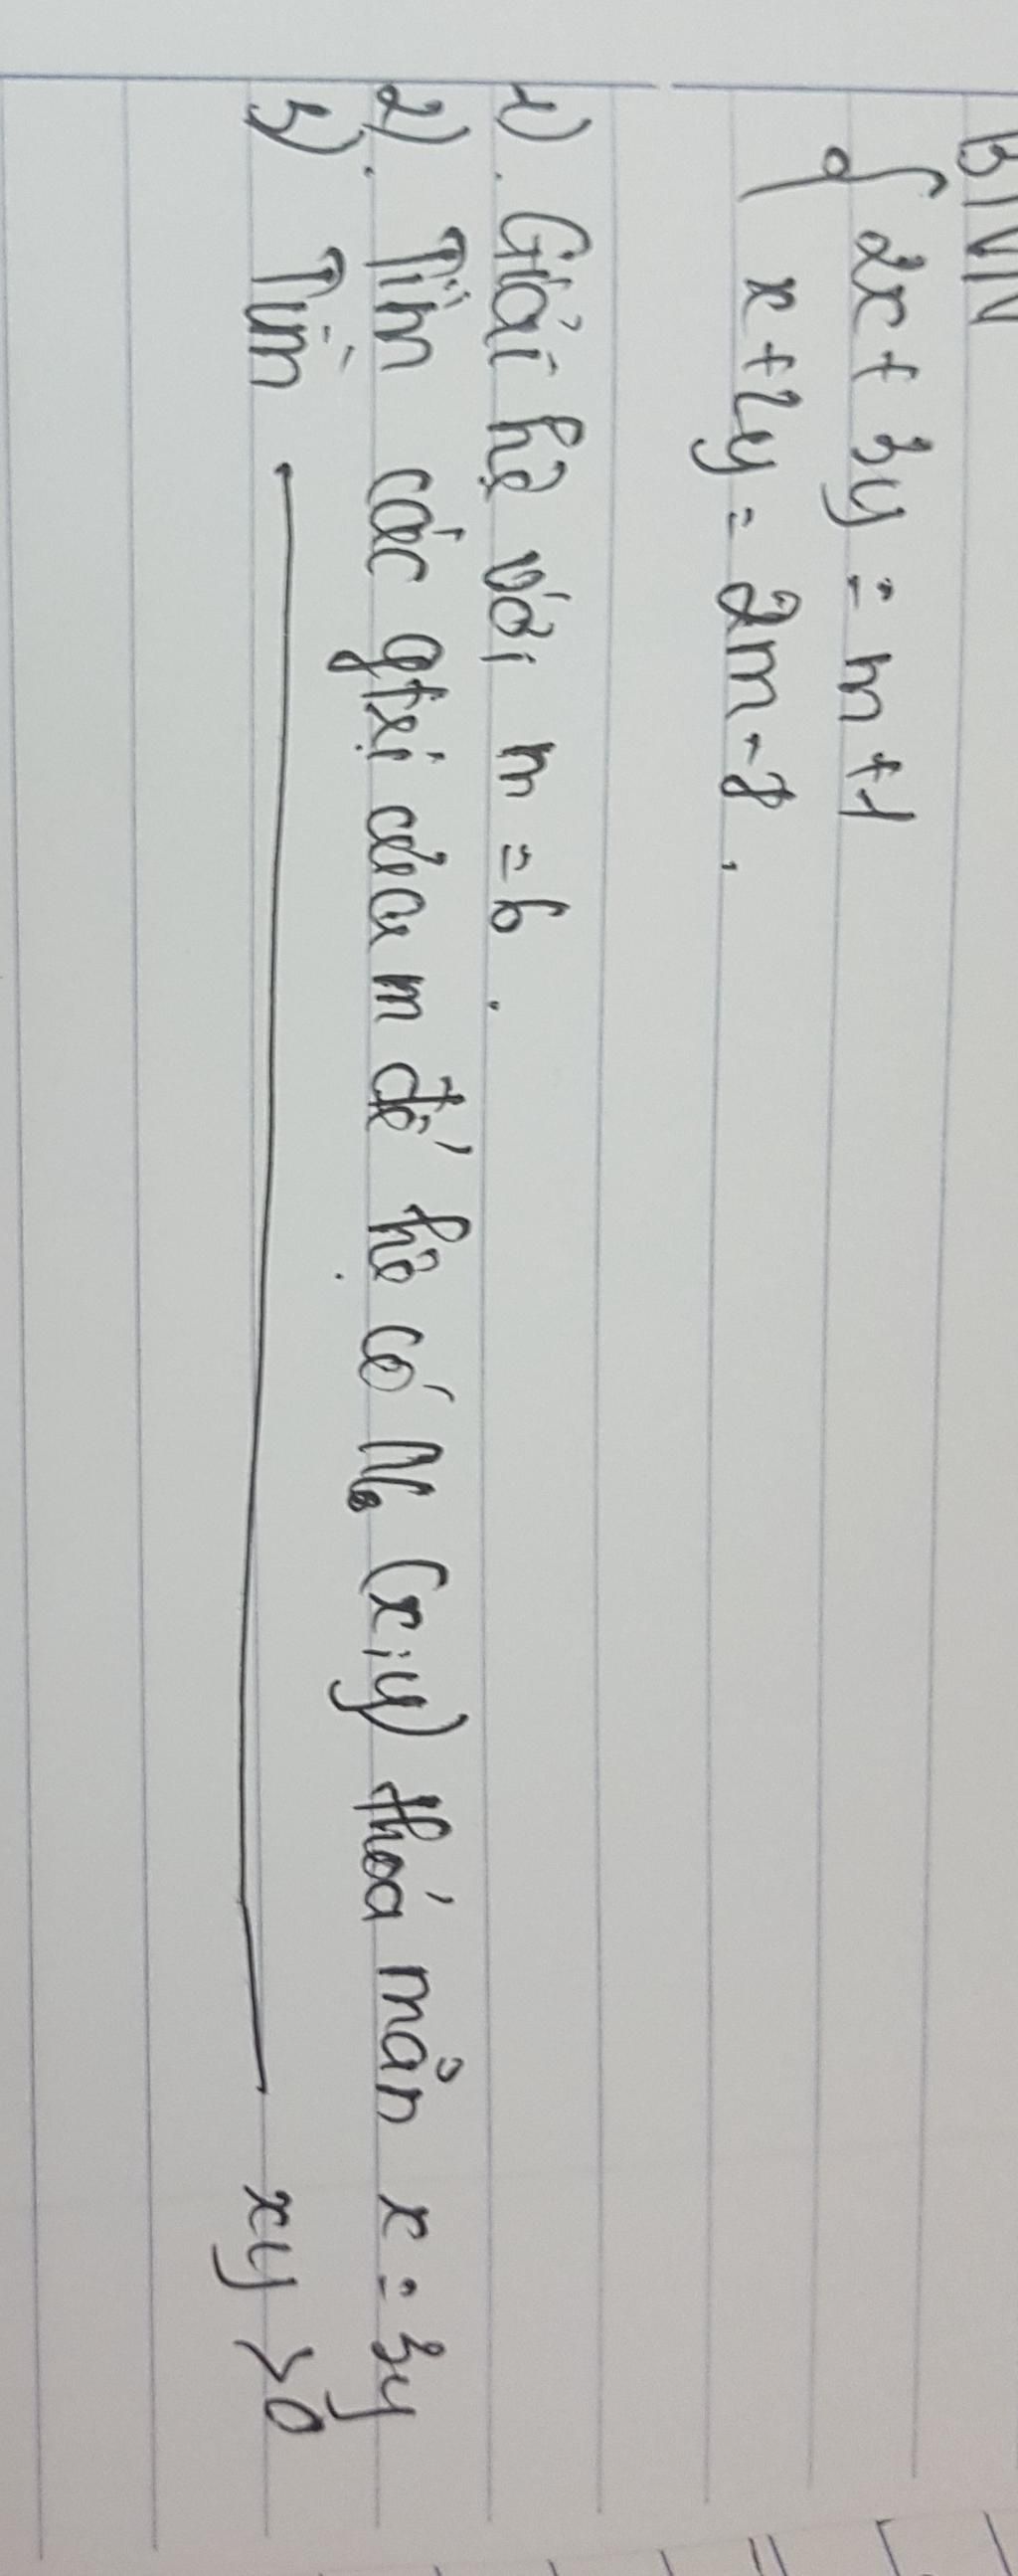 BTVN
{ 2x + 3y = m + 1
x + 2y = 2m - 8.
1). Giải hệ với m = 6.
2). Tìm các gtrị của m để hệ có No (x;y) thoả mãn x = 3y
3) Tìm ——— xy > 0